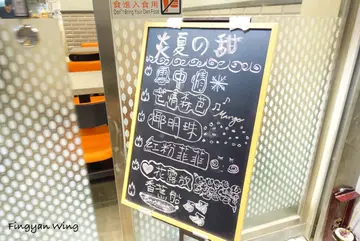 食進入食用
Don't Bring Your Own Food
炎夏の甜
雪中情
芒情森色
Mango
椰明珠
紅粉菲菲
花露放
香蕉船
Fingyan Wing